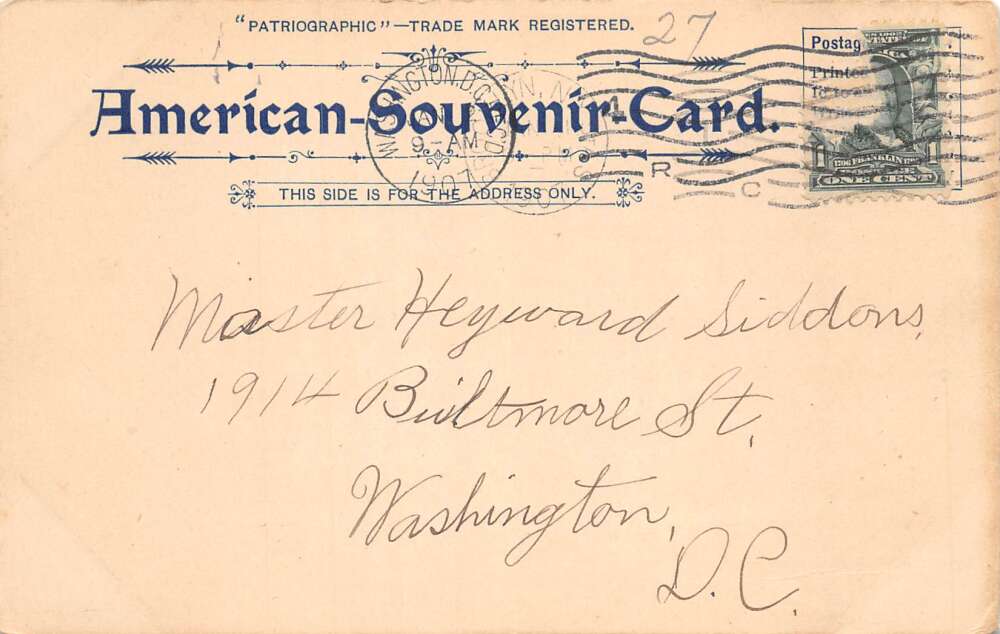 "PATRIOGRAPHIC"—TRADE MARK REGISTERED.
27
American-Souvenir-Card.
THIS SIDE IS FOR THE ADDRESS ONLY.
WASHINGTON, D.C.
9-AM
1907
R
C
Postag
Printe
FRANKLIN
ONE CENT
Master Heyward Siddons,
1914 Biltmore St.
Washington,
D.C.